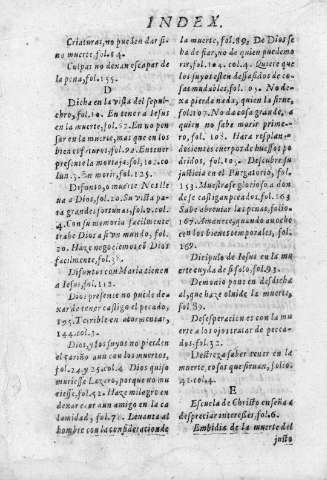 INDEX.
Criaturas, no pueden dar si-
no muerte, fol. 14.
Culpas no dexan escapar de
la pena, fol. 155.
D
Dicha en la vista del sepul-
cro, fol. 10. En tener a Iesus
en la muerte, fol. 57. En no pen-
sar en la muerte, mas que en los
bienes fol. 92. En tener
presente la mortaja, fol. 10. co
lun. 3. En morir, fol. 125.
Difunto, o muerte
a Dios, fol. 20. Su vista pa-
ga grandes fortunas, fol. col.
4. Con su memoria facilmente,
trabe Dios a si vn mundo, fol.
20. Haze negociemos el Dios
facilmente, fol. 3
Difuntos con Maria tienen a
Iesus, fol. 112.
Dios presente no puede de-
xar de tener castigo el pecado,
195. Terrible en atormentar,
144. col. 3.
Dios, y los suyos no pierden
el cariño aun con los muertos,
fol. 24. y 25. col. 4. Dios quiso
muriesse Lazaro, porque no mu
riesse, fol. 52. Haze milagro en
dexar caer aun amigo en la ca
lamidad, fol. 70. Leuanta al
hombre con la consideracion de
la muerte, fol. 89. De Dios se
ha de fiar, no de quien puede mo
rir, fol. 104. col. 4. Quiere que
los suyos estèn desasidos de co-
sas mudables, fol. 05. No de-
xa pierda nada, quien la sirue,
fol. 107. No da cosa grande, a
quien no sabe morir prime-
ro, fol. 103. Hara resplan-
decientes cuerpos de huessos po
dridos, fol. 105. Descubre su
justicia en el Purgatorio, fol.
153. Muestrase glorioso a don
de se castigan pecados, fol. 163
Sabe abreuiar las penas, folio
167. Amanece quando anochec
en los bienes temporales, fol.
169.
Discipulo de Iesus en la mu
erte cuyda de si solo, fol. 93.
Demonio pone en desdicha
al, que haze oluide la muerte,
fol. 89.
Desesperacion es con la mu
erte a los ojos tratar de pecca-
dos, fol. 32.
Destreza saber tener en la
muerte, cosas que siruan, folio
42. col. 4.
E
Escuela de Christo enseña a
despreciar interesses, fol. 6.
Embidia de la muerte del
justo